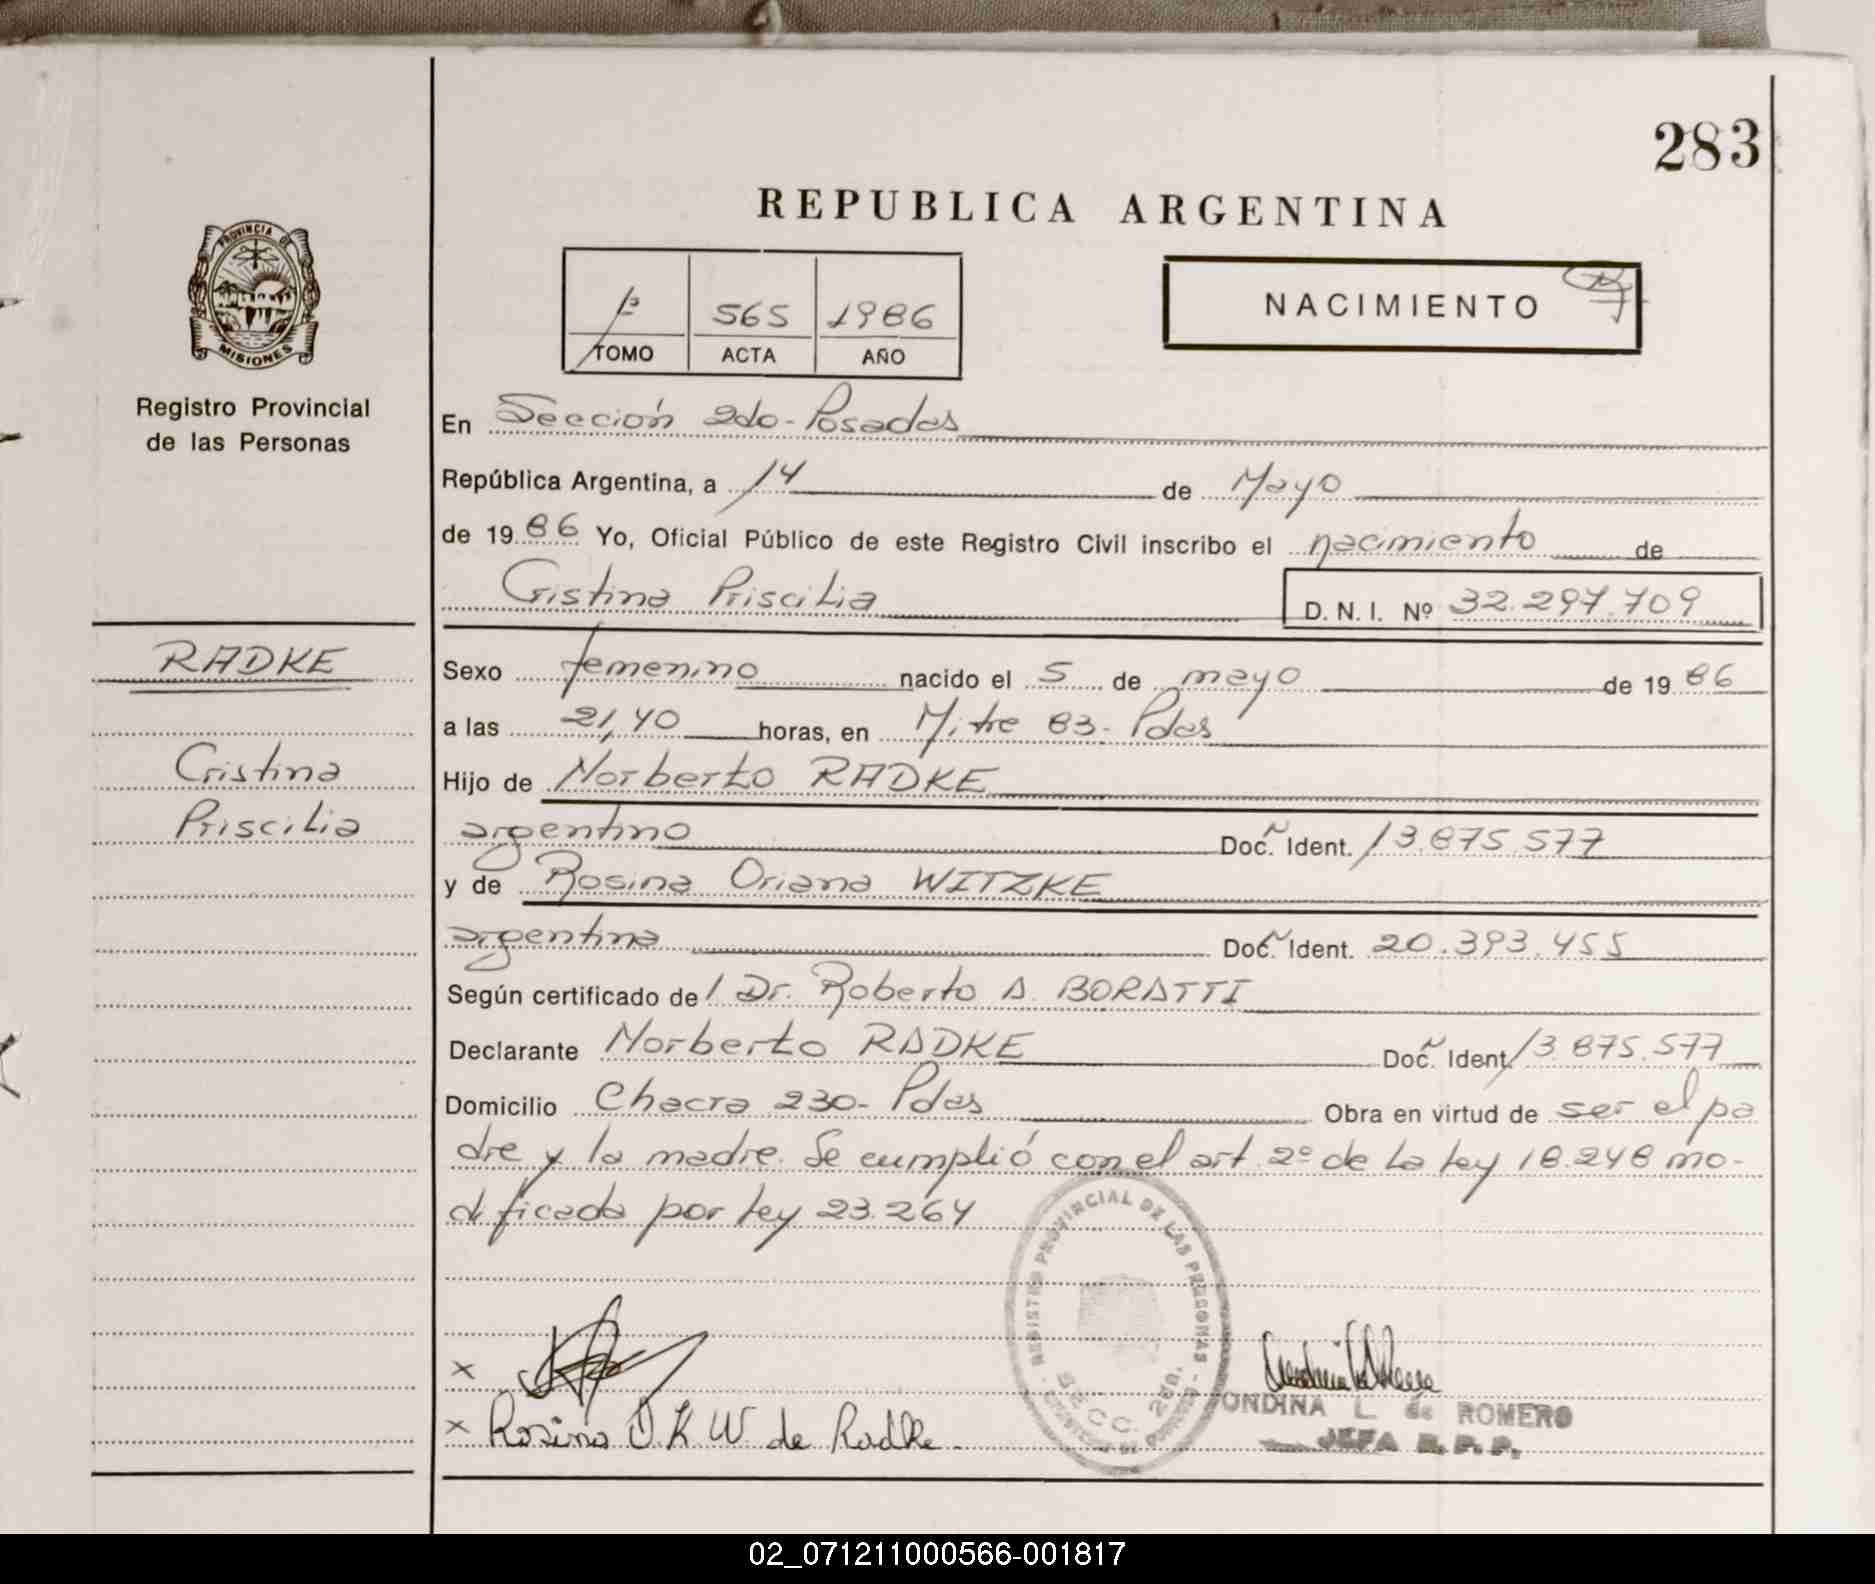 283
REPUBLICA ARGENTINA
PROVINCIA DE
MISIONES
Registro Provincial
de las Personas
1º 565 1986
TOMO ACTA AÑO
NACIMIENTO
En Sección 2do - Posadas
República Argentina, a 14 de Mayo
de 1986 Yo, Oficial Público de este Registro Civil inscribo el nacimiento de
Cristina Priscilia D. N. I. Nº 32.297.709
RADKE
Cristina
Priscilia
Sexo femenino nacido el 5 de mayo de 1986
a las 21,40 horas, en Mitre 83 - Pdas
Hijo de Norberto RADKE
argentino Doc. Ident. 13.875.577
y de Rosina Oriana WITZKE
argentina Doc. Ident. 20.393.455
Según certificado de / Dr. Roberto A. BORATTI
Declarante Norberto RADKE Doc. Ident. 13.875.577
Domicilio Chacra 230 - Pdas Obra en virtud de ser el pa
dre y la madre. Se cumplió con el art. 2º de la ley 18.248 mo-
dificada por ley 23.264
REGISTRO PROVINCIAL DE LAS PERSONAS
SECC. 2da.
x
x Rosina O. K W de Radke
ONDINA L. de ROMERO
JEFA R. P. P.
02_071211000566-001817